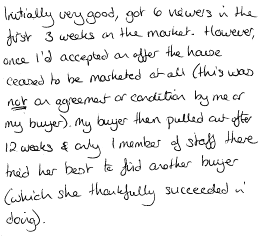 Initially very good, got 6 viewers in the
first 3 weeks on the market. However,
once I'd accepted an offer the house
ceased to be marketed at all (this was
not an agreement or condition by me or
my buyer). My buyer then pulled out after
12 weeks & only 1 member of staff there
tried her best to find another buyer
(which she thankfully succeeded in
doing).